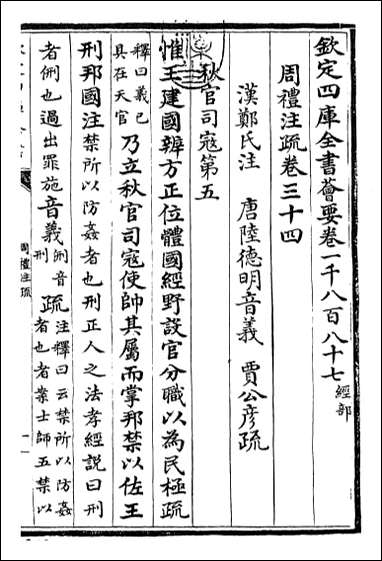 欽定四庫全書薈要卷一千八百八十七 經部
周禮注疏卷三十四
漢鄭氏注 唐陸德明音義 賈公彥疏
秋官司寇第五
惟王建國辨方正位體國經野設官分職以為民極疏
釋曰義已具在天官 乃立秋官司寇使帥其屬而掌邦禁以佐王
刑邦國注禁所以防姦者也刑正人之法孝經說曰刑
者侀也過出罪施音義侀音刑 疏注釋曰云禁所以防姦者也者案士師五禁以
周禮注疏